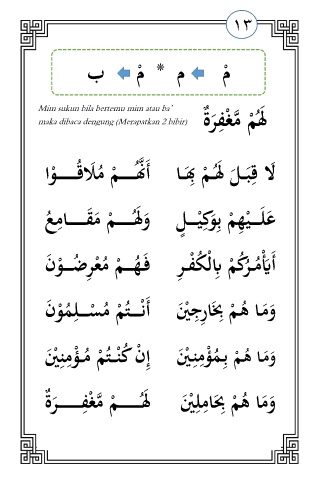 ١٣
مْ ← م * مْ ← ب
Mim sukun bila bertemu mim atau ba'
maka dibaca dengung (Merapatkan 2 bibir)
لَهُمْ مَّغْفِرَةٌ
لَا قِبَـلَ لَهُـمْ بِهَـا أَنَّهُـــمْ مُلَاقُـــوْا
عَلَــيْهِمْ بِوَكِيْــلٍ وَلَهُـــمْ مَقَـــامِعُ
أَيَأْمُـرُكُمْ بِالْكُفْـرِ فَـهُـمْ مُعْرِضُــوْنَ
وَمَا هُمْ بِخَارِجِيْنَ أَنْــتُمْ مُسْــلِمُوْنَ
وَمَا هُمْ بِمُؤْمِنِيْنَ إِنْ كُنْـتُمْ مُـؤْمِنِيْنَ
وَمَا هُمْ بِحَامِلِيْنَ لَهُــــمْ مَّغْفِــــرَةٌ